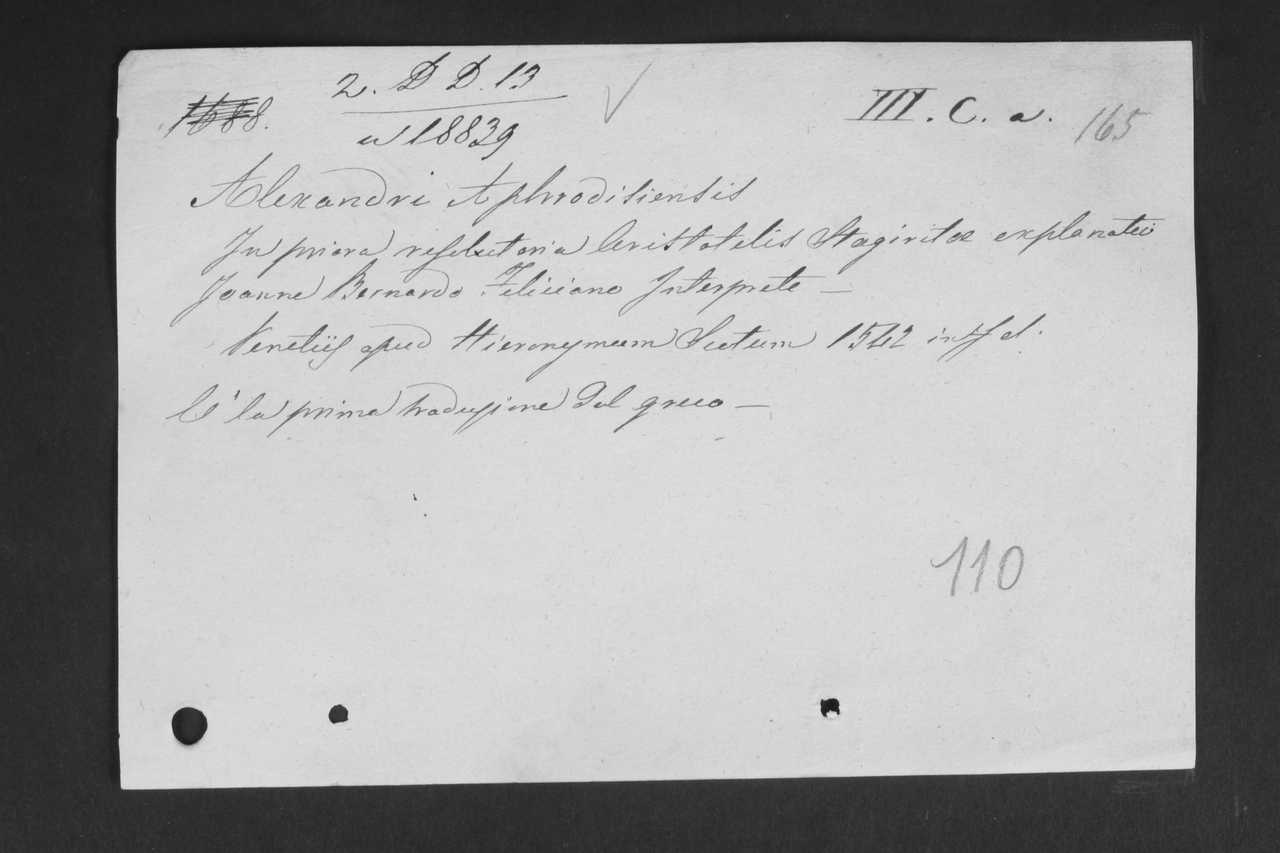 1688. 2. D D. 13 III. C. a. 165
a 18839
Alexandri Aphrodisiensis
In priora resolutoria Aristotelis Stagiritæ explanatio
Joanne Bernardo Feliciano Interprete —
Venetiis apud Hieronymum Scotum 1542 in f.
E' la prima traduzione dal greco —
110